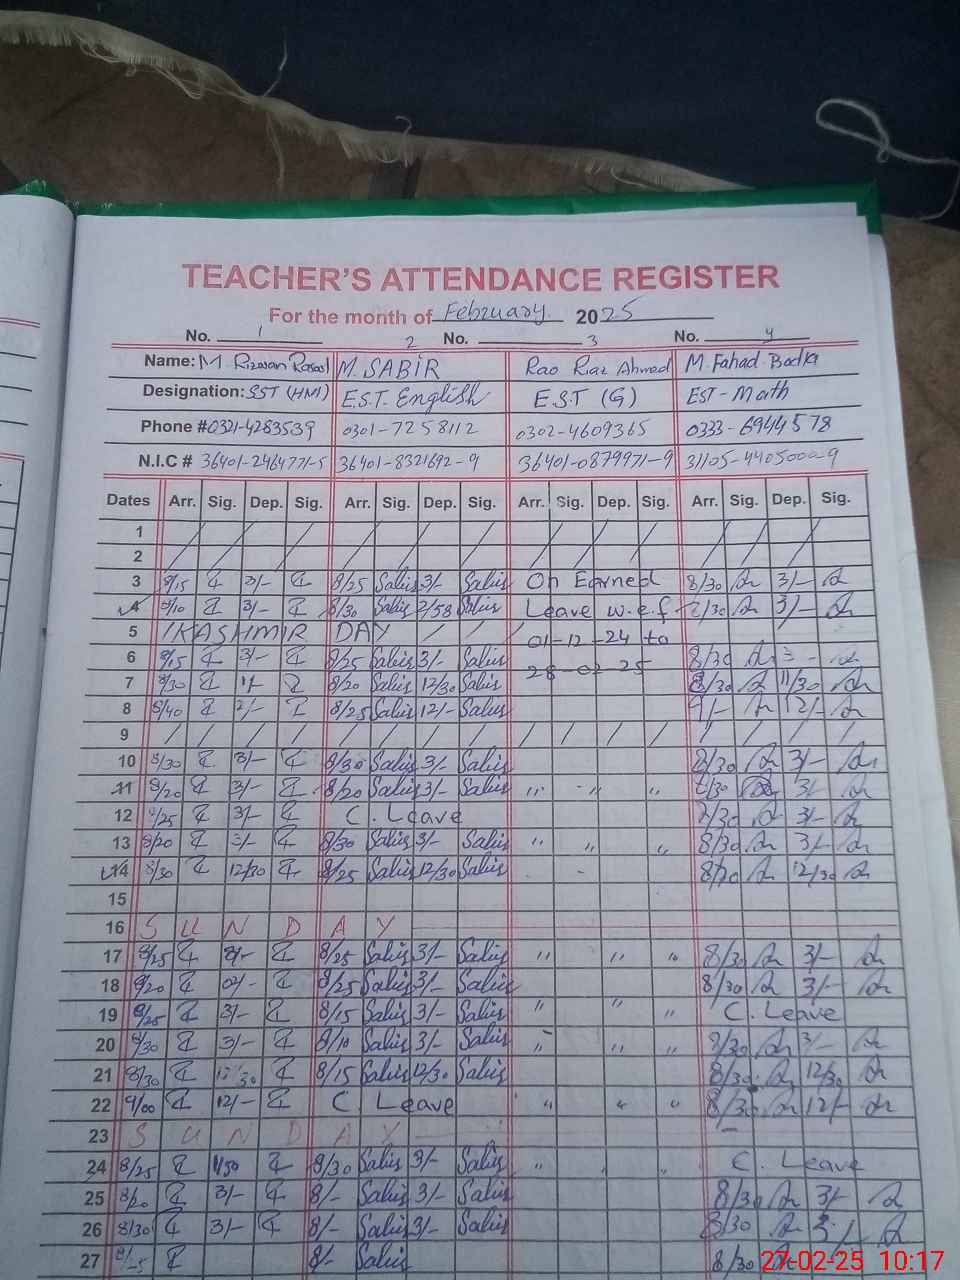 TEACHER'S ATTENDANCE REGISTER
For the month of February 2025
No. 1 2 No. 3 No. 4
Name: M. Rizwan Rasool M. SABIR Rao Riaz Ahmed M. Fahad
Designation: SST (HM) E.S.T. English E.S.T (G) EST - Math
Phone # 0321-4283539 0301-7258112 0302-4609365 0333-6944578
N.I.C # 36401-2464771-5 36401-8321692-9 36401-0879971-9
Dates Arr. Sig. Dep. Sig. Arr. Sig. Dep. Sig. Arr. Sig. Dep. Sig. Arr. Sig. Dep. Sig.
1 / / / / / / / / / / / / / / / /
2 / / / / / / / / / / / / / / / /
3 8/15 3/- 8/25 Sabir 3/- Sabir On Earned 8/30 3/-
4 8/10 3/- 8/30 Sabir 2/58 Sabir Leave w.e.f 3/-
5 / KASHMIR DAY / / / 01-12-24 to
6 8/15 3/- 8/25 Sabir 3/- Sabir 28-02-25 8/30 3-
7 8/30 8/20 Sabir 12/30 Sabir 8/30 11/30
8 8/40 8/25 Sabir 12/- Sabir 9/- 12/-
9 / / / / / / / / / / / / / / / /
10 8/30 3/- 8/30 Sabir 3/- Sabir 8/30 3/-
11 8/20 3/- 8/20 Sabir 3/- Sabir " " " 8/30 3/-
12 8/25 3/- C. Leave 8/30 3/-
13 8/20 3/- 8/30 Sabir 3/- Sabir " " " 8/30 3/-
14 8/30 12/30 8/25 Sabir 12/30 Sabir 12/30
15
16 S U N D A Y
17 8/25 3/- 8/25 Sabir 3/- Sabir " " " 8/30 3/-
18 8/20 8/25 Sabir 3/- Sabir 8/30 3/-
19 8/25 3/- 8/15 Sabir 3/- Sabir " " " C. Leave
20 8/30 3/- 8/10 Sabir 3/- Sabir " " " 8/30 3/-
21 8/30 12/30 8/15 Sabir 12/30 Sabir 8/30 12/30
22 9/00 12/- C. Leave " " " 8/30 12/-
23 S U N D A Y
24 8/25 8/30 Sabir 3/- Sabir " C. Leave
25 8/20 3/- 8/- Sabir 3/- Sabir 8/30 3/-
26 8/30 3/- 8/- Sabir 3/- Sabir 8/30 3/-
27 8/25 8/- Sabir 8/30
27-02-25 10:17